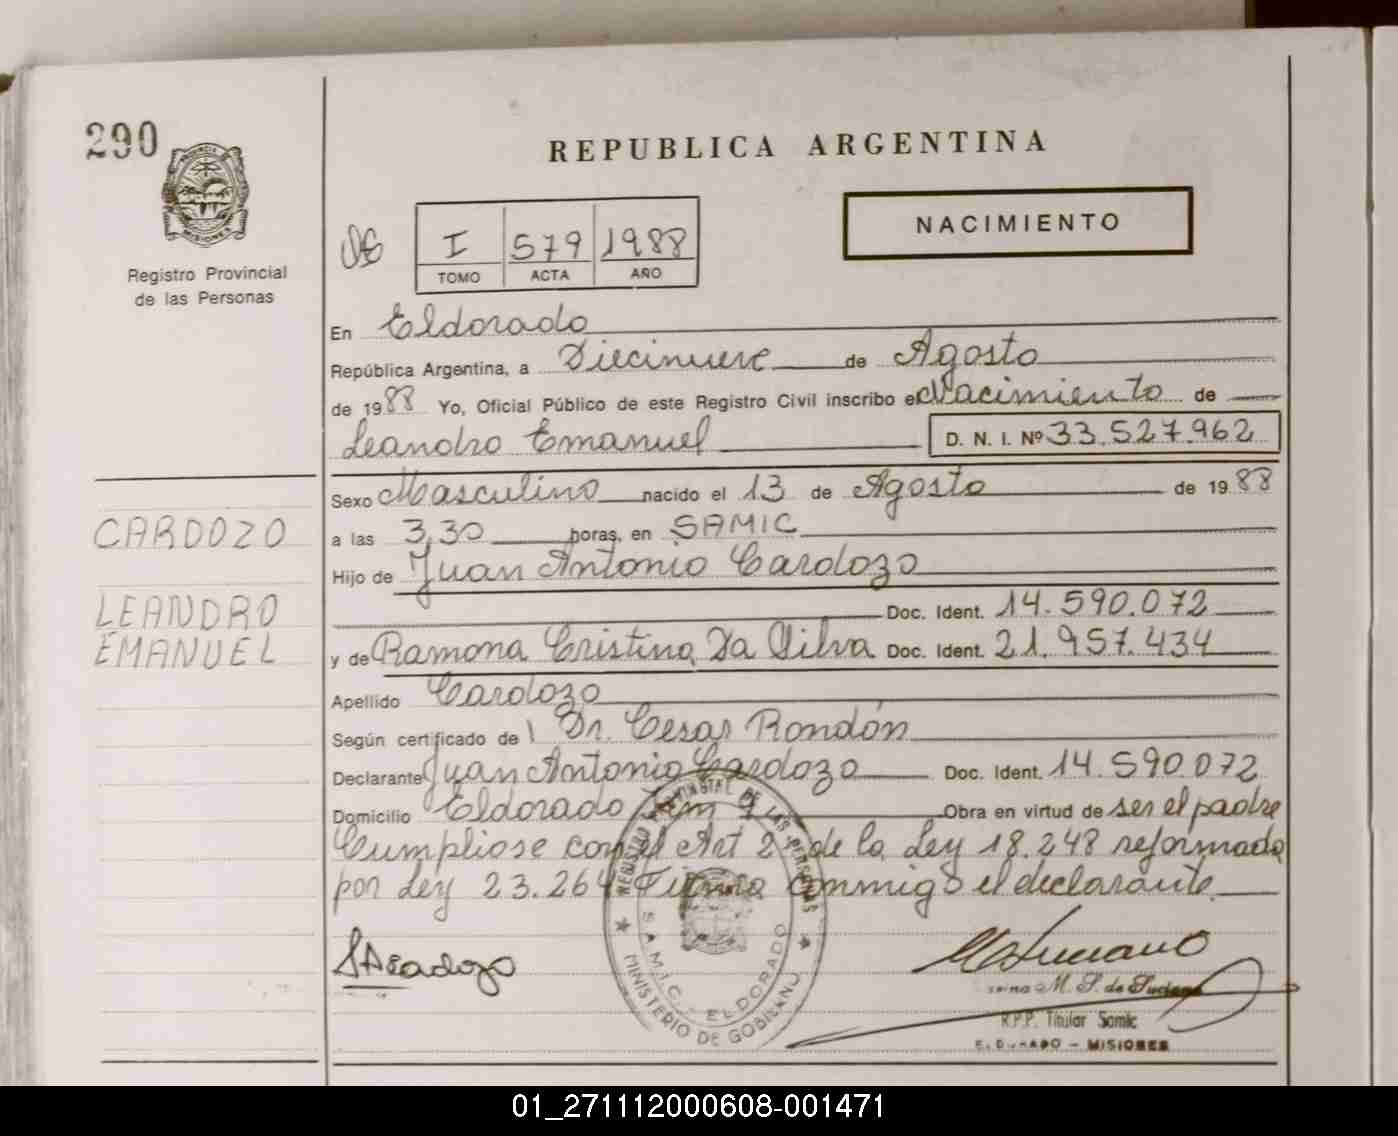 290
PROVINCIA
MISIONES
Registro Provincial
de las Personas
REPUBLICA ARGENTINA
NACIMIENTO
I 579 1988
TOMO ACTA AÑO
En Eldorado
República Argentina, a Diecinueve de Agosto
de 1988 Yo, Oficial Público de este Registro Civil inscribo el Nacimiento de
Leandro Emanuel D. N. I. Nº 33.527.962
Sexo Masculino nacido el 13 de Agosto de 1988
a las 3,30 horas, en SAMIC
Hijo de Juan Antonio Cardozo
Doc. Ident. 14.590.072
y de Ramona Cristina Da Silva Doc. Ident. 21.957.434
Apellido Cardozo
Según certificado de Dr. Cesar Rondón
Declarante Juan Antonio Cardozo Doc. Ident. 14.590.072
Domicilio Eldorado Km 9 Obra en virtud de ser el padre
Cumpliose con el Art 2 de la Ley 18.248 reformada
por Ley 23.264 Firma conmigo el declarante.
CARDOZO
LEANDRO
EMANUEL
REGISTRO PROVINCIAL DE LAS PERSONAS
S.A.M.I.C. - ELDORADO
MINISTERIO DE GOBIERNO
M. S. de Luciano
R.P.P. Titular Samic
ELDORADO - MISIONES
01_271112000608-001471